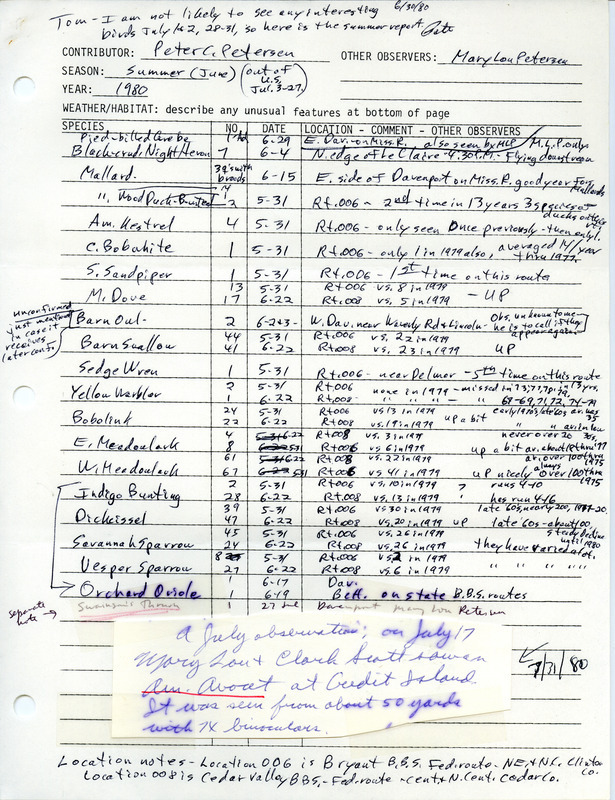 Tom - I am not likely to see any interesting 6/30/80
birds July 1&2, 28-31, so here is the summer report Pete
CONTRIBUTOR: Peter C. Petersen OTHER OBSERVERS: Mary Lou Petersen
SEASON: Summer (June) (out of U.S. Jul. 3-27)
YEAR: 1980
WEATHER/HABITAT: describe any unusual features at bottom of page
SPECIES NO. DATE LOCATION - COMMENT - OTHER OBSERVERS
Pied-billed Grebe 6-29 E. Dav. on Miss. R. also seen by MLP M.L.P. only
Black-crnd. Night Heron 7 6-4 N. edge of Le Claire - 9:30 P.M. - Flying downstream
Mallard 3 ♀'s with broods 6-15 E. side of Davenport on Miss. R. good year for Mallards
Wood Duck 2 5-31 Rt. 006 - 2nd time in 13 years 3 species of ducks on this rt.
Am. Kestrel 4 5-31 Rt. 006 - only seen once previously - then only 1.
C. Bobwhite 1 5-31 Rt. 006 - only 1 in 1979 also, averaged 14/year thru 1977
S. Sandpiper 1 5-31 Rt. 006 - 1st time on this route
M. Dove 13 5-31 Rt 006 vs. 8 in 1979 - UP
17 6-22 Rt. 008 vs. 5 in 1979
unconfirmed just mentioned in case it receives later conf.
Barn Owl - 2 6-2&3 - W. Dav. near Waverly Rd & Lincoln - Obs. unknown to me - he is to call if they appear again
Barn Swallow 44 5-31 Rt. 006 vs. 22 in 1979
41 6-22 Rt. 008 vs. 23 in 1979 UP
Sedge Wren 1 5-31 Rt. 006 - near Delmar - 5th time on this route in 13 yrs.
Yellow Warbler 2 5-31 Rt. 006 none in 1979 - missed in 73, 77, 79
1 6-22 Rt. 008 " " " - " 68-69, 71, 72, 74-79
Bobolink 24 5-31 Rt 006 vs 13 in 1979 up a bit early 1970s/late 60s av. was 35
22 6-22 Rt. 008 vs. 19 in 1979 " " av. in low 30s.
E. Meadowlark 4 5-31 6-22 Rt. 008 vs. 3 in 1979 never over 20
8 6-22 5-31 Rt. 006 vs 6 in 1979 up a bit av. about 10 thru '77
W. Meadowlark 61 5-31 6-22 Rt. 008 vs. 22 in 1979 av. over 100 thru 1975
67 6-22 5-31 Rt. 006 vs. 41 in 1979 up nicely always over 100 thru 1975
Indigo Bunting 2 5-31 Rt. 006 vs. 10 in 1979 runs 4-10
28 6-22 Rt. 008 vs. 13 in 1979 has run 4-16
Dickcissel 39 5-31 Rt. 006 vs 30 in 1979 late 60s, nearly 200, 1977-20.
47 6-22 Rt. 008 vs. 20 in 1979 up late 60s - about 100, steady decline until 1980
Savannah Sparrow 45 5-31 Rt. 006 vs. 26 in 1979
24 6-22 Rt. 008 vs. 26 in 1979 they have varied a lot.
Vesper Sparrow 8 5-31 Rt. 006 vs. 2 in 1979
27 6-22 Rt. 008 vs. 6 in 1979 " " " "
Orchard Oriole 1 6-17 Dav.
1 6-19 Bett. on state B.B.S. routes
separate note → Swainson's Thrush 1 27 Davenport Mary Lou Petersen
A July observation; on July 17
Mary Lou & Clark Scott saw an
Am. Avocet at Credit Island.
It was seen from about 50 yards
with 7X binoculars.
7/31/80
Location notes - Location 006 is Bryant B.B.S. Fed. route - NE. & N.C. Clinton Co.
Location 008 is Cedar Valley B.B.S. - Fed. route - cent. & N. Cent. Cedar Co.